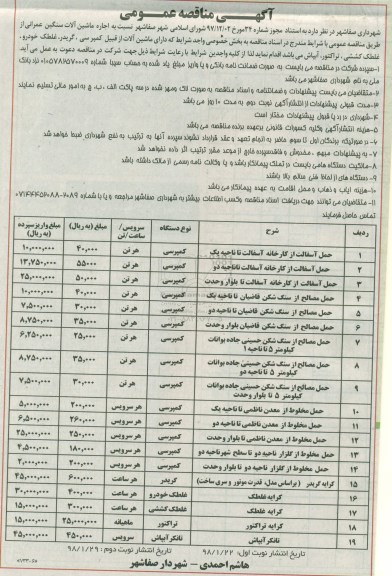 آگهی مناقصه عمومی
شهرداری صفاشهر در نظر دارد به استناد مجوز شماره ۳۴ مورخ ۹۷/۱۲/۰۲ شورای اسلامی شهر صفاشهر نسبت به اجاره ماشین آلات سنگین عمرانی از
طریق مناقصه عمومی با شرایط مندرج در اسناد مناقصه به بخش خصوصی واجد شرایط که دارای ماشین آلات از قبیل کمپرسی ، گریدر، غلطک خودرو ،
غلطک کششی ، تراکتور، آبپاش می باشد اقدام نماید لذا از کلیه واجدین شرایط با رعایت شرایط ذیل جهت شرکت در مناقصه دعوت به عمل می آید.
۱-سپرده شرکت در مناقصه می بایست به صورت ضمانت نامه بانکی و یا واریز مبلغ یاد شده به حساب سیبا شماره نزد بانک
ملی به نام شهرداری صفاشهر می باشد
۲-متقاضیان می بایست پیشنهادات و ضمانتنامه و اسناد مناقصه به صورت لاک ومهر شده در سه پاکت الف ، ب، ج به امور مالی تسلیم نمایند
۳-مدت قبولی پیشنهادات از انتشار آگهی نوبت دوم به مدت ۱۰ روز می باشد
۴-شهرداری در رد یا قبول پیشنهادات مختار است
۵-هزینه انتشار آگهی وکلیه کسورات قانونی برعهده برنده مناقصه می باشد
۶-در صورتیکه برندگان اول تا سوم حاضر به انجام تعهد و عقد قرارداد نشوند سپرده آنها به ترتیب به نفع شهرداری ضبط خواهد شد
۷-به پیشنهادات مبهم ، مخدوش و فاقد سپرده خارج از موعد مقرر ترتیب اثر داده نخواهد شد
۸-مالکیت دستگاه هامی بایست در تملک پیمانکار باشد و یا وکالت نامه رسمی از مالک داشته باشد
۹-دستگاه های از لحاظ فنی سالم باشند
۱۰-هزینه ایاب و ذهاب و محل اقامت به عهده پیمانکار می باشد
۱۱-متقاضیان می توانند جهت دریافت اسناد مناقصه وکسب اطلاعات بیشتر به شهرداری صفاشهر مراجعه و یا با شماره
تماس حاصل فرمایند
ردیف شرح نوع دستگاه سرویس/ساعت/تن مبلغ (به ریال) مبلغ واریز سپرده (به ریال)
۱ حمل آسفالت از کارخانه آسفالت تا ناحیه یک کمپرسی هر تن ۴۰,۰۰۰ ۱۰,۰۰۰,۰۰۰
۲ حمل آسفالت از کارخانه آسفالت تا ناحیه دو کمپرسی هر تن ۵۵۰۰۰ ۱۳,۷۵۰,۰۰۰
۳ حمل آسفالت از کارخانه آسفالت تا بلوار وحدت کمپرسی هر تن ۵۰,۰۰۰ ۲۵,۰۰۰,۰۰۰
۴ حمل مصالح از سنگ شکن قاضیان تا ناحیه یک کمپرسی هر تن ۴۰,۰۰۰ ۱۰,۰۰۰,۰۰۰
۵ حمل مصالح از سنگ شکن قاضیان تا ناحیه دو کمپرسی هر تن ۳۰,۰۰۰ ۷,۵۰۰,۰۰۰
۶ حمل مصالح از سنگ شکن قاضیان بلوار وحدت کمپرسی هر تن ۳۵,۰۰۰ ۸,۷۵۰,۰۰۰
۷ حمل مصالح از سنگ شکن حسینی جاده بوانات کیلومتر ۵ تا ناحیه ۱ کمپرسی هر تن ۲۵,۰۰۰ ۶,۲۵۰,۰۰۰
۸ حمل مصالح از سنگ شکن حسینی جاده بوانات کیلومتر ۵ تا ناحیه دو کمپرسی هر تن ۳۵,۰۰۰ ۸,۷۵۰,۰۰۰
۹ حمل مصالح از سنگ شکن حسینی جاده بوانات کیلومتر ۵ تا بلوار وحدت کمپرسی هر تن ۳۰,۰۰۰ ۷,۵۰۰,۰۰۰
۱۰ حمل مخلوط از معدن ناظمی تا ناحیه یک کمپرسی هر سرویس ۲۰۰,۰۰۰ ۵,۰۰۰,۰۰۰
۱۱ حمل مخلوط از معدن ناظمی تا ناحیه دو کمپرسی هر سرویس ۲۶۰,۰۰۰ ۶,۵۰۰,۰۰۰
۱۲ حمل مخلوط از معدن ناظمی تا بلوار وحدت کمپرسی هر سرویس ۲۵۰,۰۰۰ ۲۵,۰۰۰,۰۰۰
۱۳ حمل مخلوط از کلزار ناحیه دو تا سطح شهر ناحیه دو کمپرسی هر سرویس ۱۸۰,۰۰۰ ۴,۵۰۰,۰۰۰
۱۴ حمل مخلوط از کلزار ناحیه دو تا بلوار وحدت کمپرسی هر سرویس ۲۰۰,۰۰۰ ۲,۰۰۰,۰۰۰
۱۵ کرایه گریدر (براساس مدل، قدرت موتور و سری ساخت) گریدر هر ساعت ۶۰۰,۰۰۰ ۴۵,۰۰۰,۰۰۰
۱۶ کرایه غلطک غلطک خودرو هر ساعت ۴۰۰,۰۰۰ ۳۰,۰۰۰,۰۰۰
۱۷ کرایه غلطک غلطک کششی هر ساعت ۳۰۰,۰۰۰ ۱۵,۰۰۰,۰۰۰
۱۸ کرایه تراکتور تراکتور ماهیانه ۲۵,۰۰۰,۰۰۰ ۱۵,۰۰۰,۰۰۰
۱۹ تانکر آبپاش تانکر آبپاش سرویس ۴۵۰,۰۰۰ ۲۵,۰۰۰,۰۰۰
تاریخ انتشار نوبت اول: ۹۸/۱/۲۲ تاریخ انتشار نوبت دوم : ۹۸/۱/۲۹
هاشم احمدی - شهردار صفاشهر